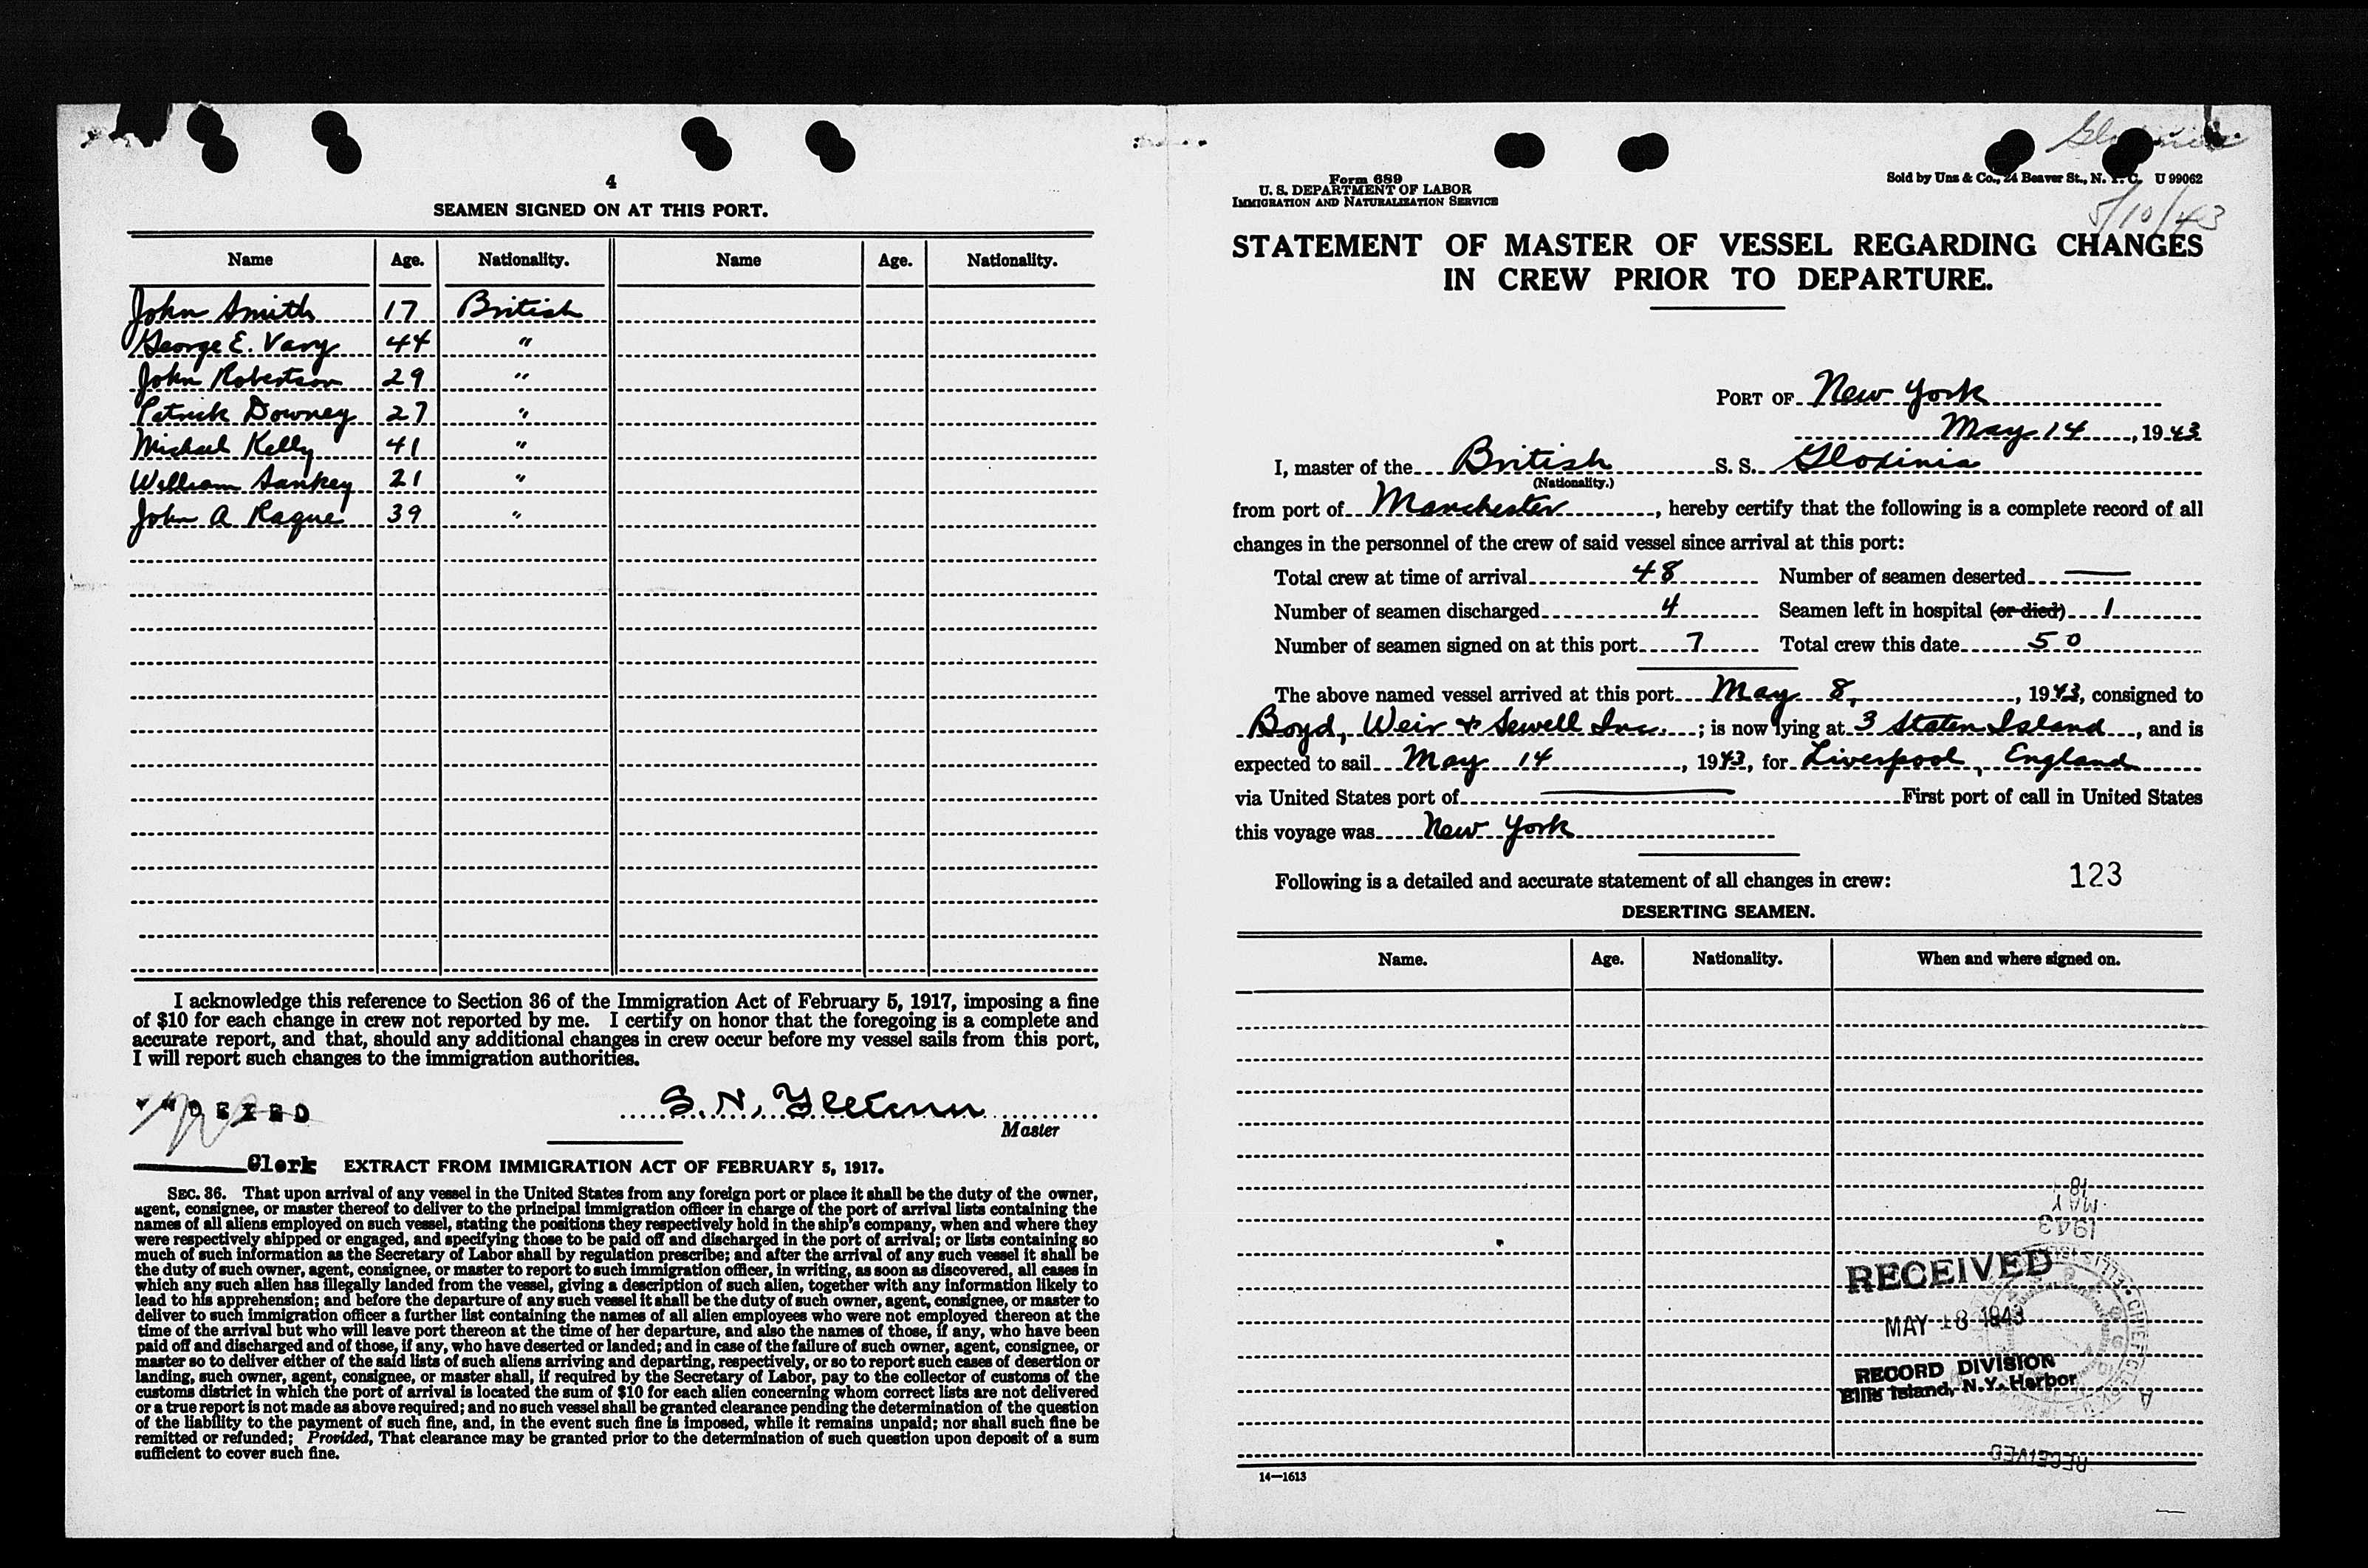 4
SEAMEN SIGNED ON AT THIS PORT.
Name Age. Nationality. Name Age. Nationality.
John Smith 17 British
George E. Vary 44 "
John Robertson 29 "
Patrick Downey 27 "
Michael Kelly 41 "
William Sankey 21 "
John A Rague 39 "
I acknowledge this reference to Section 36 of the Immigration Act of February 5, 1917, imposing a fine
of $10 for each change in crew not reported by me. I certify on honor that the foregoing is a complete and
accurate report, and that, should any additional changes in crew occur before my vessel sails from this port,
I will report such changes to the immigration authorities.
S. N.
Master
Clerk
EXTRACT FROM IMMIGRATION ACT OF FEBRUARY 5, 1917.
SEC. 36. That upon arrival of any vessel in the United States from any foreign port or place it shall be the duty of the owner,
agent, consignee, or master thereof to deliver to the principal immigration officer in charge of the port of arrival lists containing the
names of all aliens employed on such vessel, stating the positions they respectively hold in the ship's company, when and where they
were respectively shipped or engaged, and specifying those to be paid off and discharged in the port of arrival; or lists containing so
much of such information as the Secretary of Labor shall by regulation prescribe; and after the arrival of any such vessel it shall be
the duty of such owner, agent, consignee, or master to report to such immigration officer, in writing, as soon as discovered, all cases in
which any such alien has illegally landed from the vessel, giving a description of such alien, together with any information likely to
lead to his apprehension; and before the departure of any such vessel it shall be the duty of such owner, agent, consignee, or master to
deliver to such immigration officer a further list containing the names of all alien employees who were not employed thereon at the
time of the arrival but who will leave port thereon at the time of her departure, and also the names of those, if any, who have been
paid off and discharged and of those, if any, who have deserted or landed; and in case of the failure of such owner, agent, consignee, or
master so to deliver either of the said lists of such aliens arriving and departing, respectively, or so to report such cases of desertion or
landing, such owner, agent, consignee, or master shall, if required by the Secretary of Labor, pay to the collector of customs of the
customs district in which the port of arrival is located the sum of $10 for each alien concerning whom correct lists are not delivered
or a true report is not made as above required; and no such vessel shall be granted clearance pending the determination of the question
of the liability to the payment of such fine, and, in the event such fine is imposed, while it remains unpaid; nor shall such fine be
remitted or refunded; Provided, That clearance may be granted prior to the determination of such question upon deposit of a sum
sufficient to cover such fine.
Form 689
U. S. DEPARTMENT OF LABOR
IMMIGRATION AND NATURALIZATION SERVICE
Sold by Uns & Co., 24 Beaver St., N. Y. C. U 99062
5/10/43
STATEMENT OF MASTER OF VESSEL REGARDING CHANGES
IN CREW PRIOR TO DEPARTURE.
PORT OF New York
May 14, 1943
I, master of the British S. S. Gloxinia
(Nationality.)
from port of Manchester, hereby certify that the following is a complete record of all
changes in the personnel of the crew of said vessel since arrival at this port:
Total crew at time of arrival 48 Number of seamen deserted —
Number of seamen discharged 4 Seamen left in hospital (or died) 1
Number of seamen signed on at this port 7 Total crew this date 50
The above named vessel arrived at this port May 8, 1943, consigned to
Boyd, Weir & Sewell Inc. ; is now lying at 3 Staten Island, and is
expected to sail May 14, 1943, for Liverpool, England
via United States port of — First port of call in United States
this voyage was New York
Following is a detailed and accurate statement of all changes in crew: 123
DESERTING SEAMEN.
Name. Age. Nationality. When and where signed on.
MAY 18 1943
RECEIVED
MAY 18 1943
RECORD DIVISION
Ellis Island, N.Y. Harbor
RECEIVED
14—1613